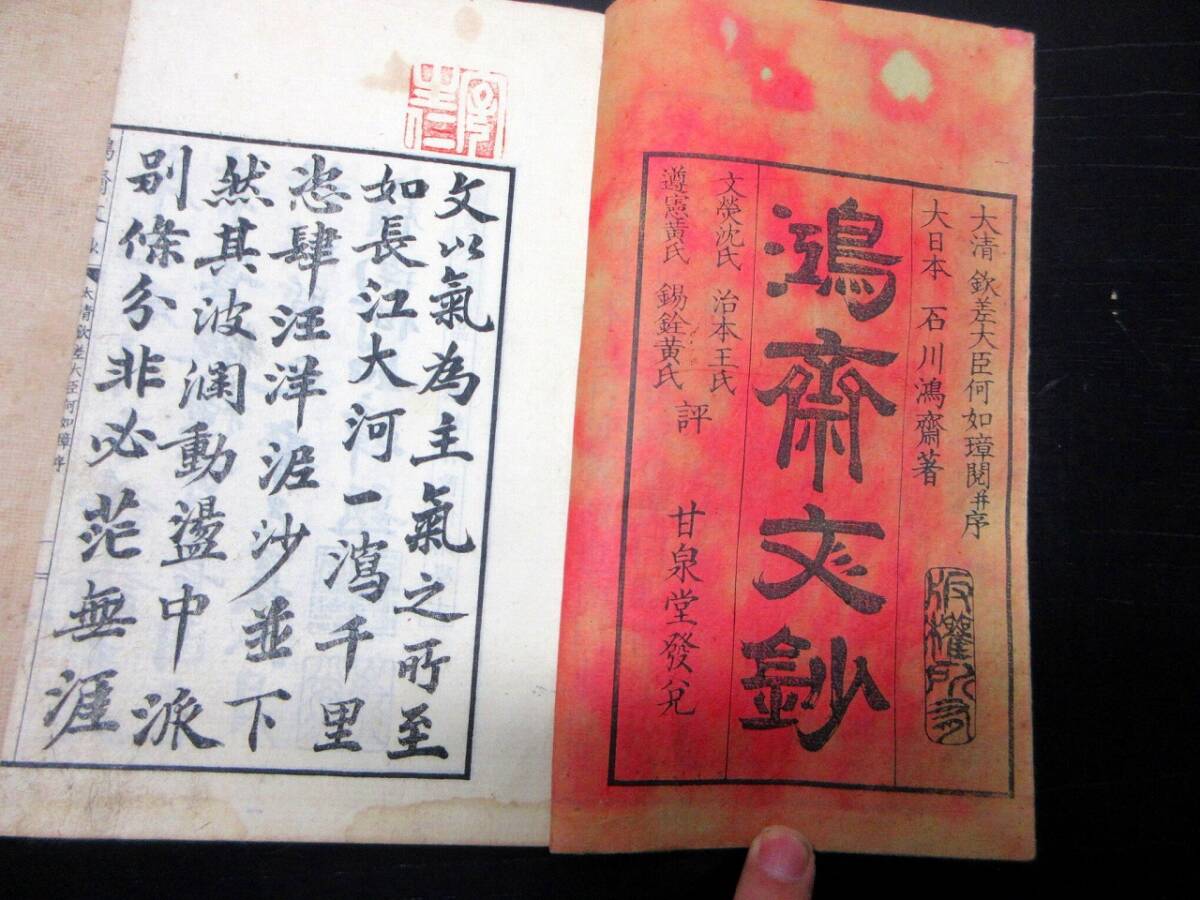 大清 欽差大臣何如璋閱并序
大日本 石川鴻齋著
版權所有
鴻齋文鈔
文熒沈氏 治本王氏
遵憲黃氏 錫銓黃氏
評
甘泉堂發兌
文以氣為主氣之所至
如長江大河一瀉千里
恣肆汪洋泥沙並下
然其波瀾動盪中派
別條分非必茫無涯
鴻齋文鈔 大清欽差大臣何如璋序